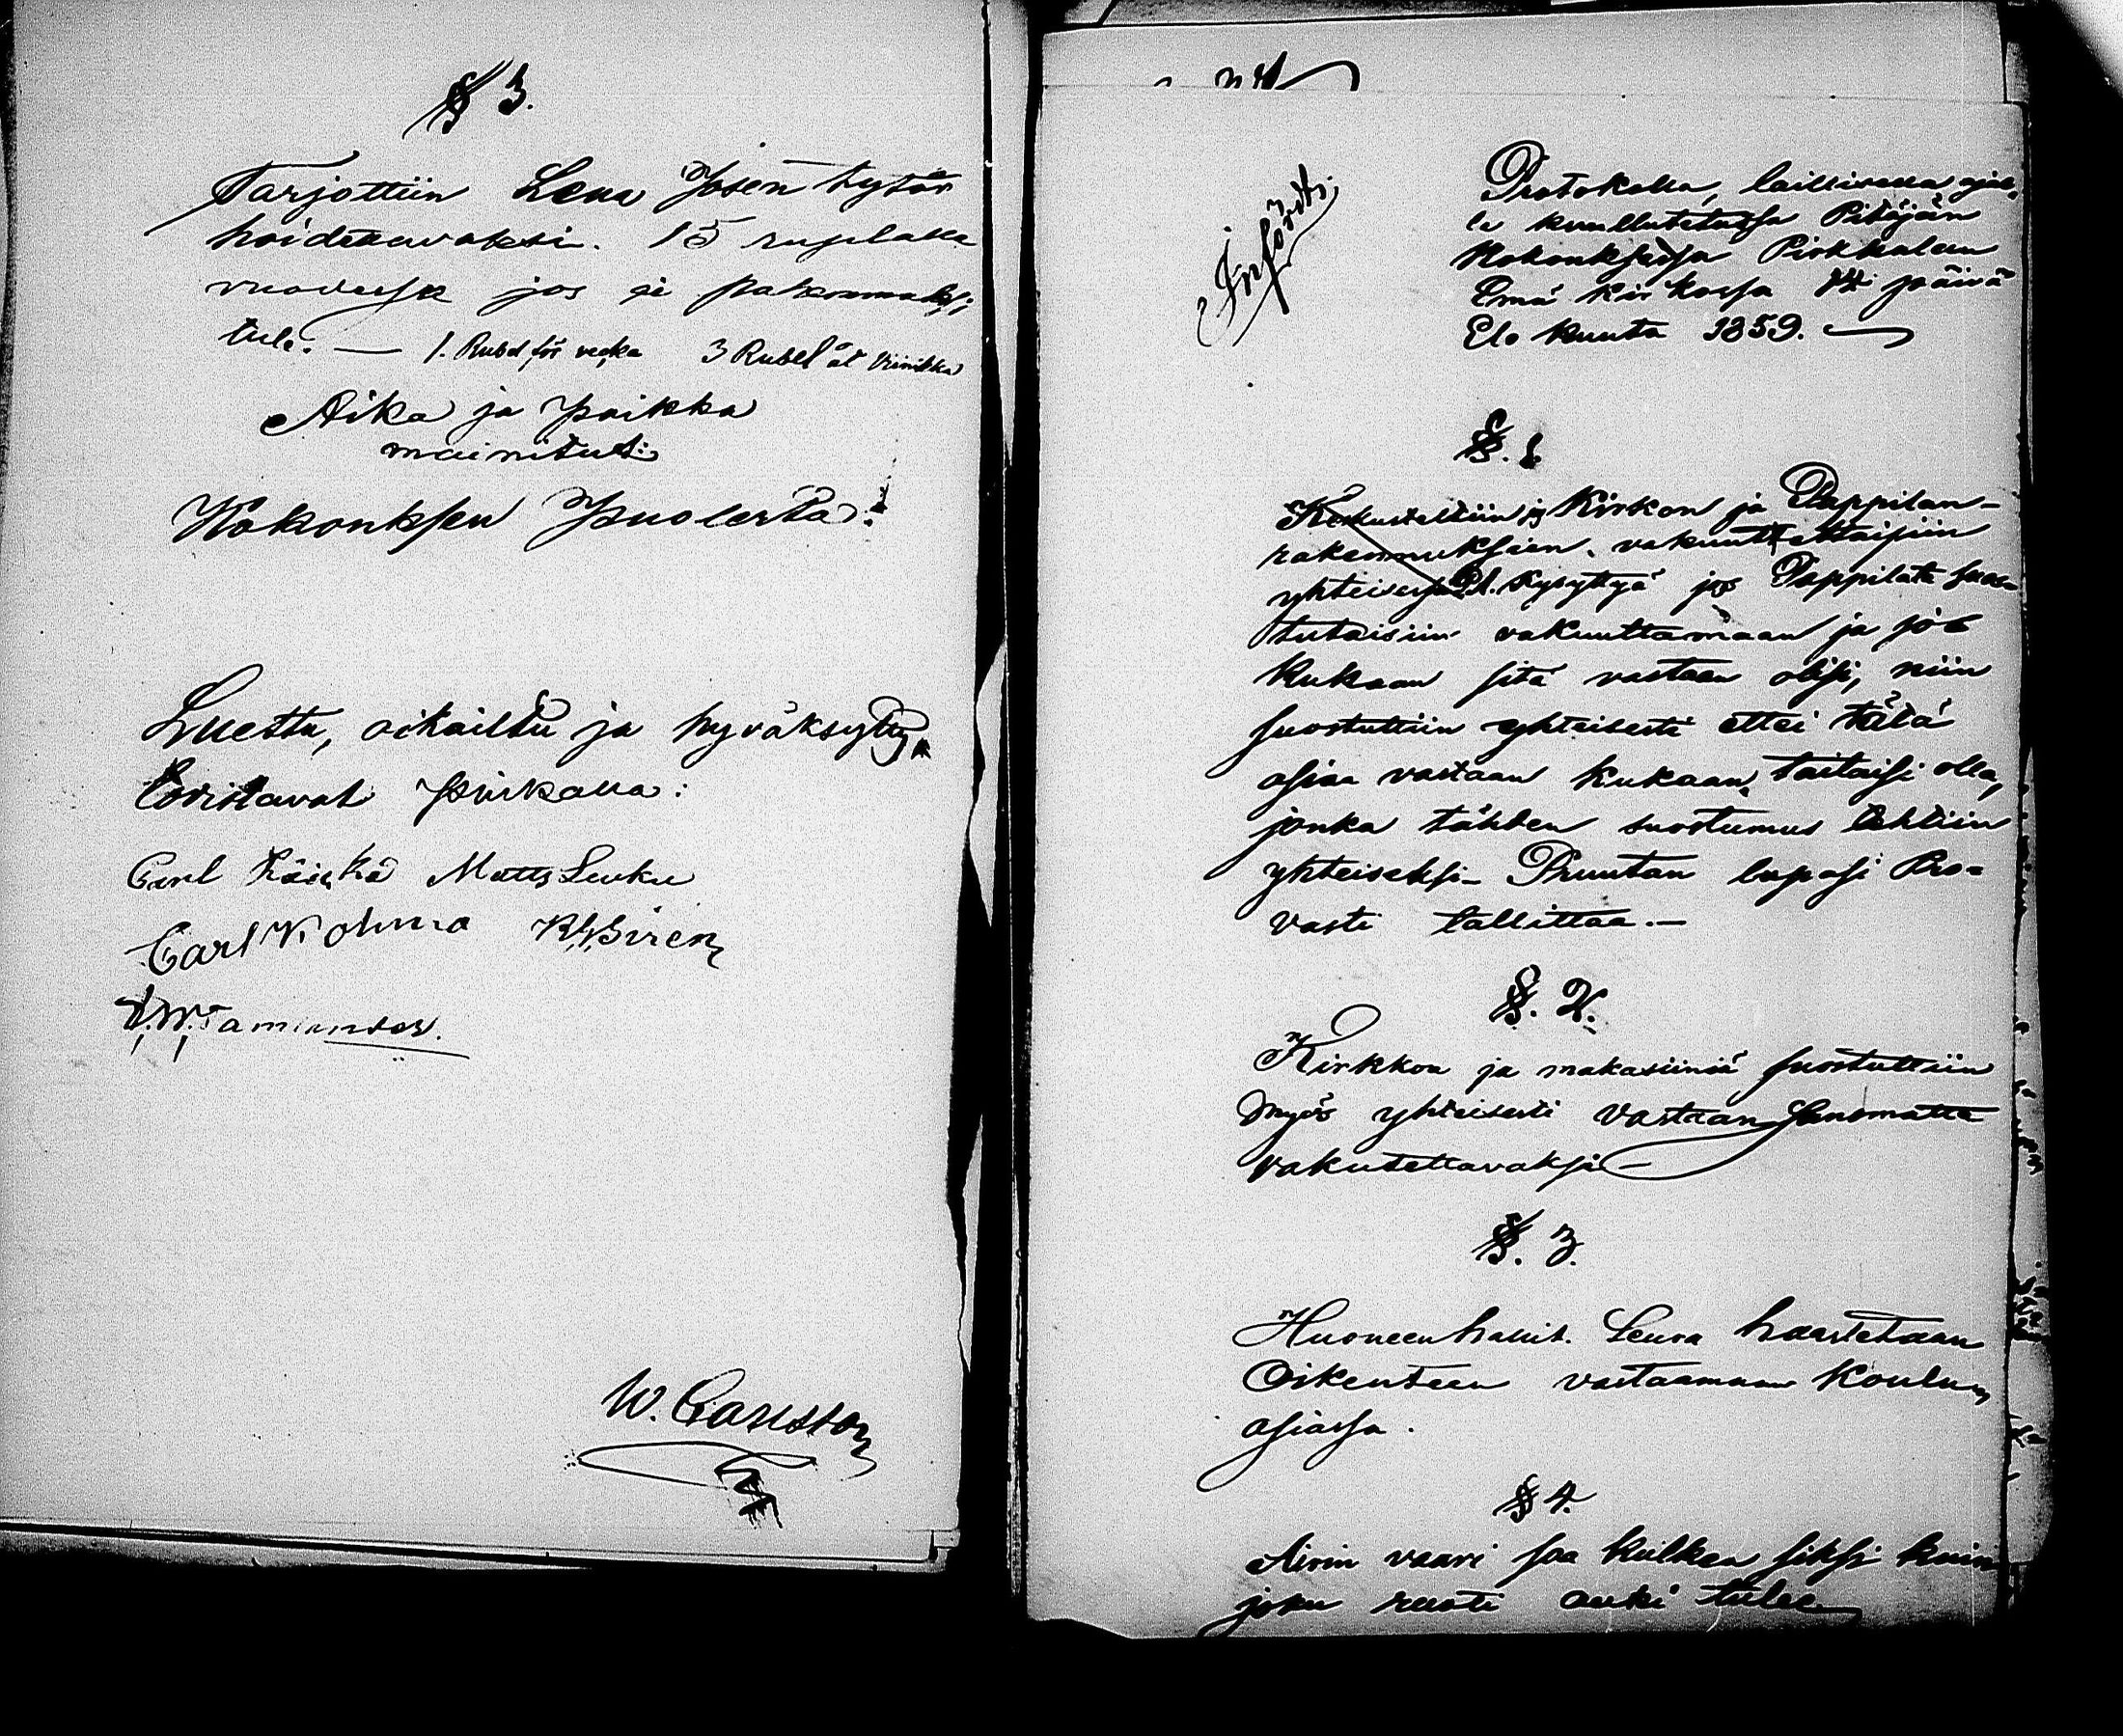 § 3.
Tarjottiin Lena Josen tytär
hoidettavaksi. 15 ruplalla
vuodessa jos ei pahemmaksi
tule. — 1. Rubel för vecka 3 Rubel åt Vinikka
Aika ja paikka
mainitut:
Kokouksen puolesta:
Luettu, oikaistu ja hyväksytty,
todistavat Pirkkala:
Carl Matts Leuku
Carl Kolma K. W. Siren
W. Carlsson
Infördt.
Protokolla, laillisella ajal-
la kuullutetussa Pitäjän
Kokouksessa Pirkkalan
Emä kirkossa päivä
Elo kuuta 1859.
§. 1
Keskusteltiin jos Kirkon ja Pappilan-
rakennuksien vakuutettaisiin
yhteisesti Kysyttyä jos Pappilata suos-
tutaisiin vakuuttamaan ja jos
kukaan sitä vastaan olisi, niin
suostuttiin yhteisesti ettei tätä
asiaa vastaan kukaan taitaisi olla,
jonka tähden suostumus tehtiin
yhteiseksi – Pruutan lupasi Pro-
vasti tallittaa. —
§. 2.
Kirkkoa ja makasiiniä suostuttiin
myös yhteisesti vastaan sanomatta
vakutettavaksi —
§. 3.
Huoneenhallit. Seura haastetaan
Oikeuteen vastaamaan koulun
asiassa.
§ 4.
vaari saa kulkea siksi kuin
joku ruoti auki tulee